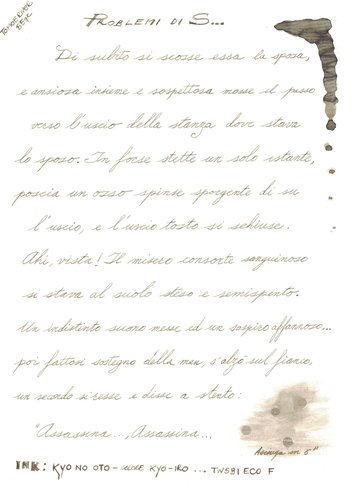 PROBLEMI DI S...
Di subito si scosse essa la sposa,
e ansiosa insieme e sospettosa mosse il passo
verso l'uscio della stanza dove stava
lo sposo. In forse stette un solo istante,
poscia un osso spinse sporgente di su
l'uscio, e l'uscio tosto si schiuse.
Ahi, vista! Il misero consorte sanguinoso
si stava al suolo steso e semispento.
Un indistinto suono messe ed un sospiro affannoso...
poi fattosi sostegno della man, s'alzò sul fianco,
un secondo si resse e disse a stento:
"Assassina..., Assassina...
Asciuga in 5"
INK: KYO NO OTO - KYO-IRO ... TWSBI ECO F